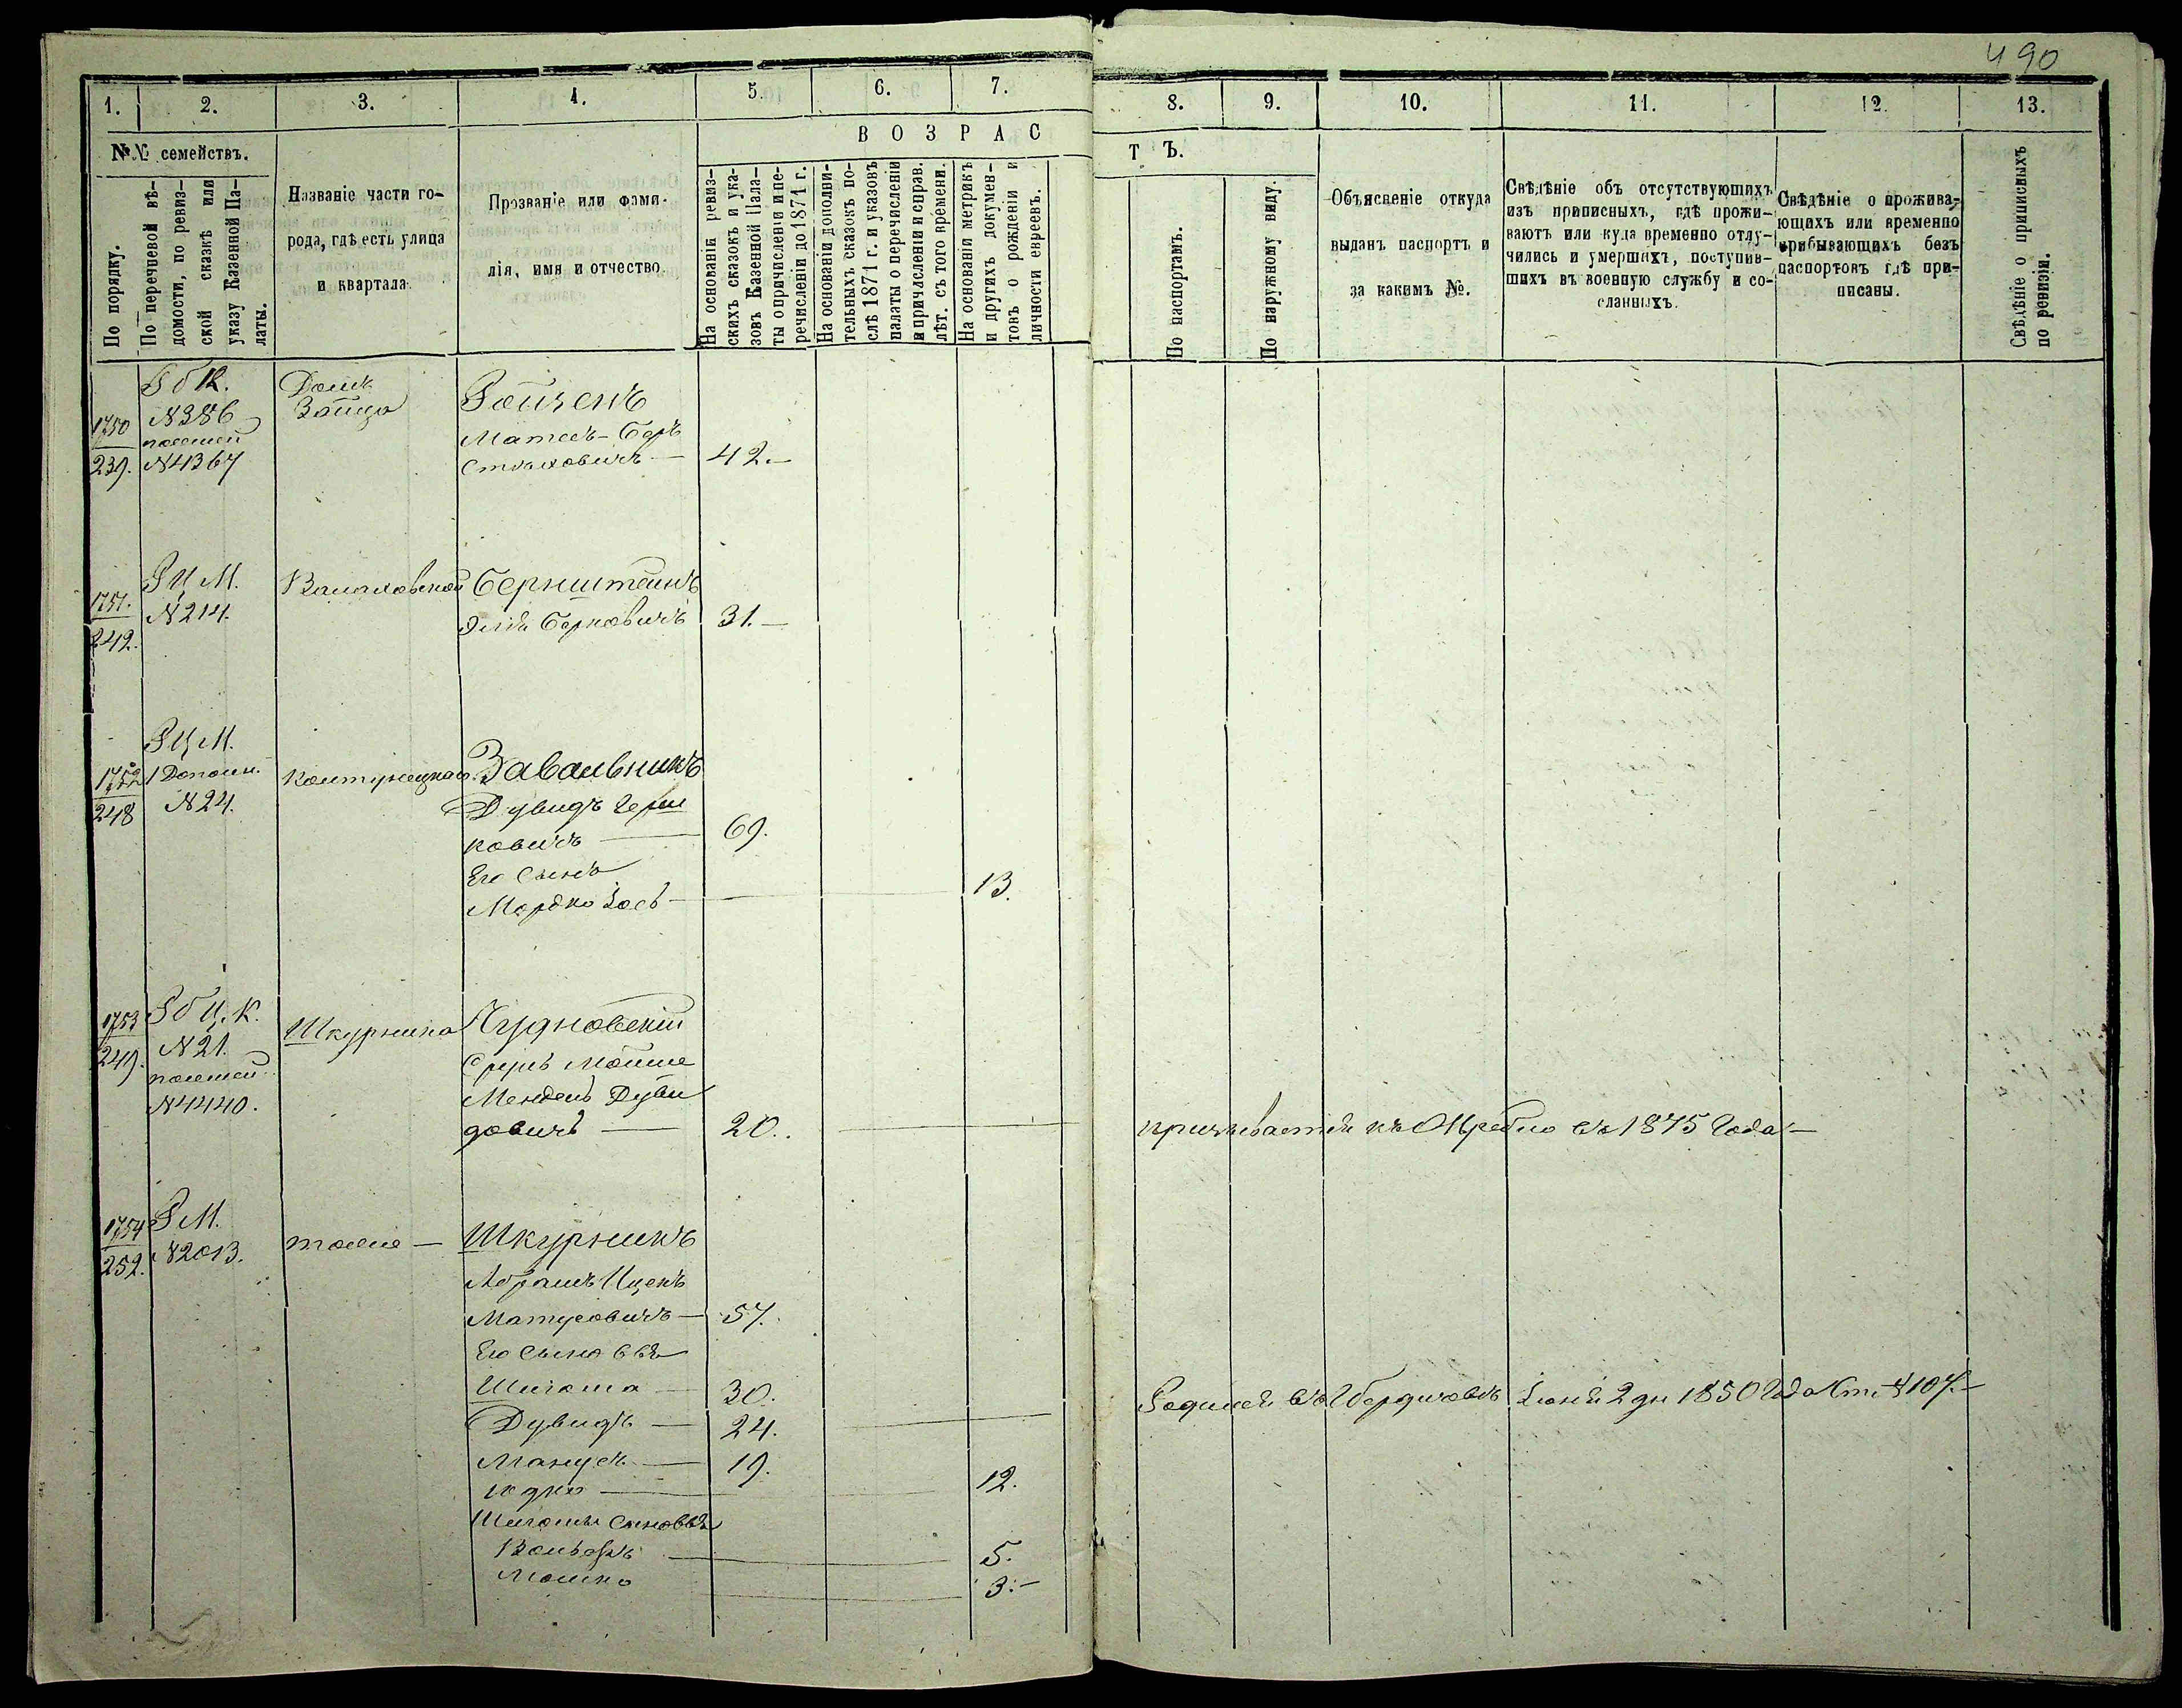 490
1. 2. 3. 4. 5. 6. 7. 8. 9. 10. 11. 12. 13.
№№ семействъ.
По порядку.
По перечневой вѣ-
домости, по ревиз-
ской сказкѣ или
указу Казенной Па-
латы.
Названіе части го-
рода, гдѣ есть улица
и квартала.
Прозваніе или фами-
лія, имя и отчество.
ВОЗРАС
На основаніи ревиз-
скихъ сказокъ и ука-
зовъ Казенной Пала-
ты о причисленіи и пе-
речисленіи до 1871 г.
На основаніи дополни-
тельныхъ сказокъ по-
слѣ 1871 г. и указовъ
палаты о перечисленіи
и причисленіи и справ.
лѣт. съ того времени.
На основаніи метрикъ
и другихъ докумен-
товъ о рожденіи и
личности евреевъ.
ТЪ.
По паспортамъ.
По наружному виду.
Объясненіе откуда
выданъ паспортъ и
за какимъ №.
Свѣдѣніе объ отсутствующихъ
изъ приписныхъ, гдѣ прожи-
ваютъ или куда временно отлу-
чились и умершихъ, поступив-
шихъ въ военную службу и со-
сланныхъ.
Свѣдѣніе о прожива-
ющихъ или временно
прибывающихъ безъ
паспортовъ гдѣ при-
писаны.
Свѣдѣніе о приписныхъ
по ревизіи.
1750
239.
N386
N4367
Домъ
Зайца
Ройзенъ
Матесъ-Беръ
42.—
1751.
242.
N214.
Бернштейнъ
Элія Берковичъ 31.—
1752
248
1 Дополн.
N24.
Завальникъ
Дувидъ Герш
ковичъ — 69.
Его сынъ
Мордко Іось — 13.
1753
249.
N21.
N4440.
Шкурника
Чудновскій
Сруль Мойше
Мендель Дуви
довичъ — 20.
1875 года —
1754
252.
N2013.
тоже —
Шкурникъ
Абрамъ Ицекъ
Матусовичъ — 57.
Его сыновья
Шигоша — 30.
Дувидъ — 24.
Манусъ — 19.
Юдко — 12.
Шигошы сыновья
Вольфъ — 5.
Мошко 3.—
Родился въ г Бердичевѣ Іюня 2 дн 1850 года Ст. N 107.—